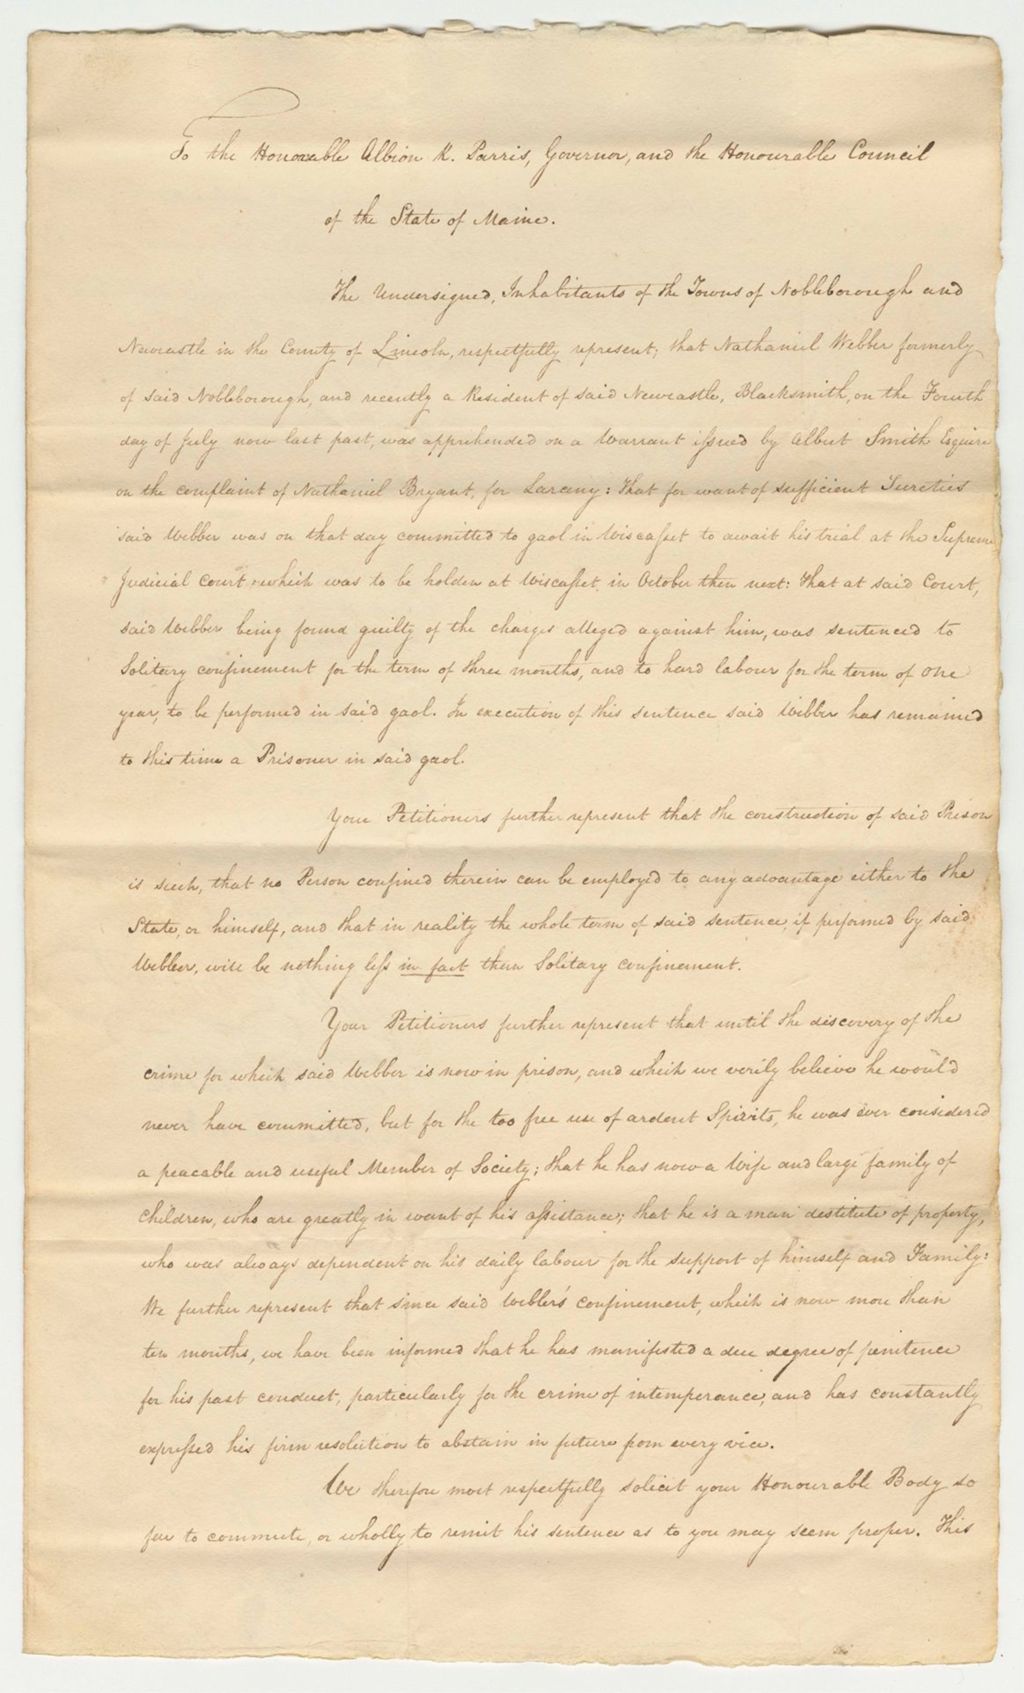 To the Honorable Albion K. Parris, Governor, and the Honourable Council
of the State of Maine.
The Undersigned, Inhabitants of the Towns of Nobleborough and
Newcastle in the County of Lincoln, respectfully represent; that Nathaniel Webber formerly
of said Nobleborough, and recently a Resident of said Newcastle, Blacksmith, on the Fourth
day of July now last past, was apprehended on a Warrant issued by Albert Smith Esquire
on the complaint of Nathaniel Bryant, for Larceny: that for want of sufficient Sureties
said Webber was on that day committed to gaol in Wiscasset to await his trial at the Supreme
Judicial Court, which was to be holden at Wiscasset, in October then next: that at said Court,
said Webber being found guilty of the charges alleged against him, was sentenced to
Solitary confinement for the term of three months, and to hard labour for the term of one
year, to be performed in said gaol. In execution of this sentence said Webber has remained
to this time a Prisoner in said gaol.
Your Petitioners further represent that the construction of said Prison
is such, that no Person confined therein can be employed to any advantage either to the
State, or himself, and that in reality the whole term of said sentence, if performed by said
Webber, will be nothing less in fact than Solitary confinement.
Your Petitioners further represent that until the discovery of the
crime for which said Webber is now in prison, and which we verily believe he would
never have committed, but for the too free use of ardent Spirits, he was ever considered
a peacable and useful Member of Society; that he has now a Wife and large family of
Children, who are greatly in want of his assistance; that he is a man destitute of property,
who was always dependent on his daily labour for the support of himself and Family:
We further represent that since said Webber's confinement, which is now more than
ten months, we have been informed that he has manifested a due degree of penitence
for his past conduct, particularly for the crime of intemperance, and has constantly
expressed his firm resolution to abstain in future from every vice.
We therefore most respectfully solicit your Honourable Body so
far to commute, or wholly to remit his sentence as to you may seem proper. This